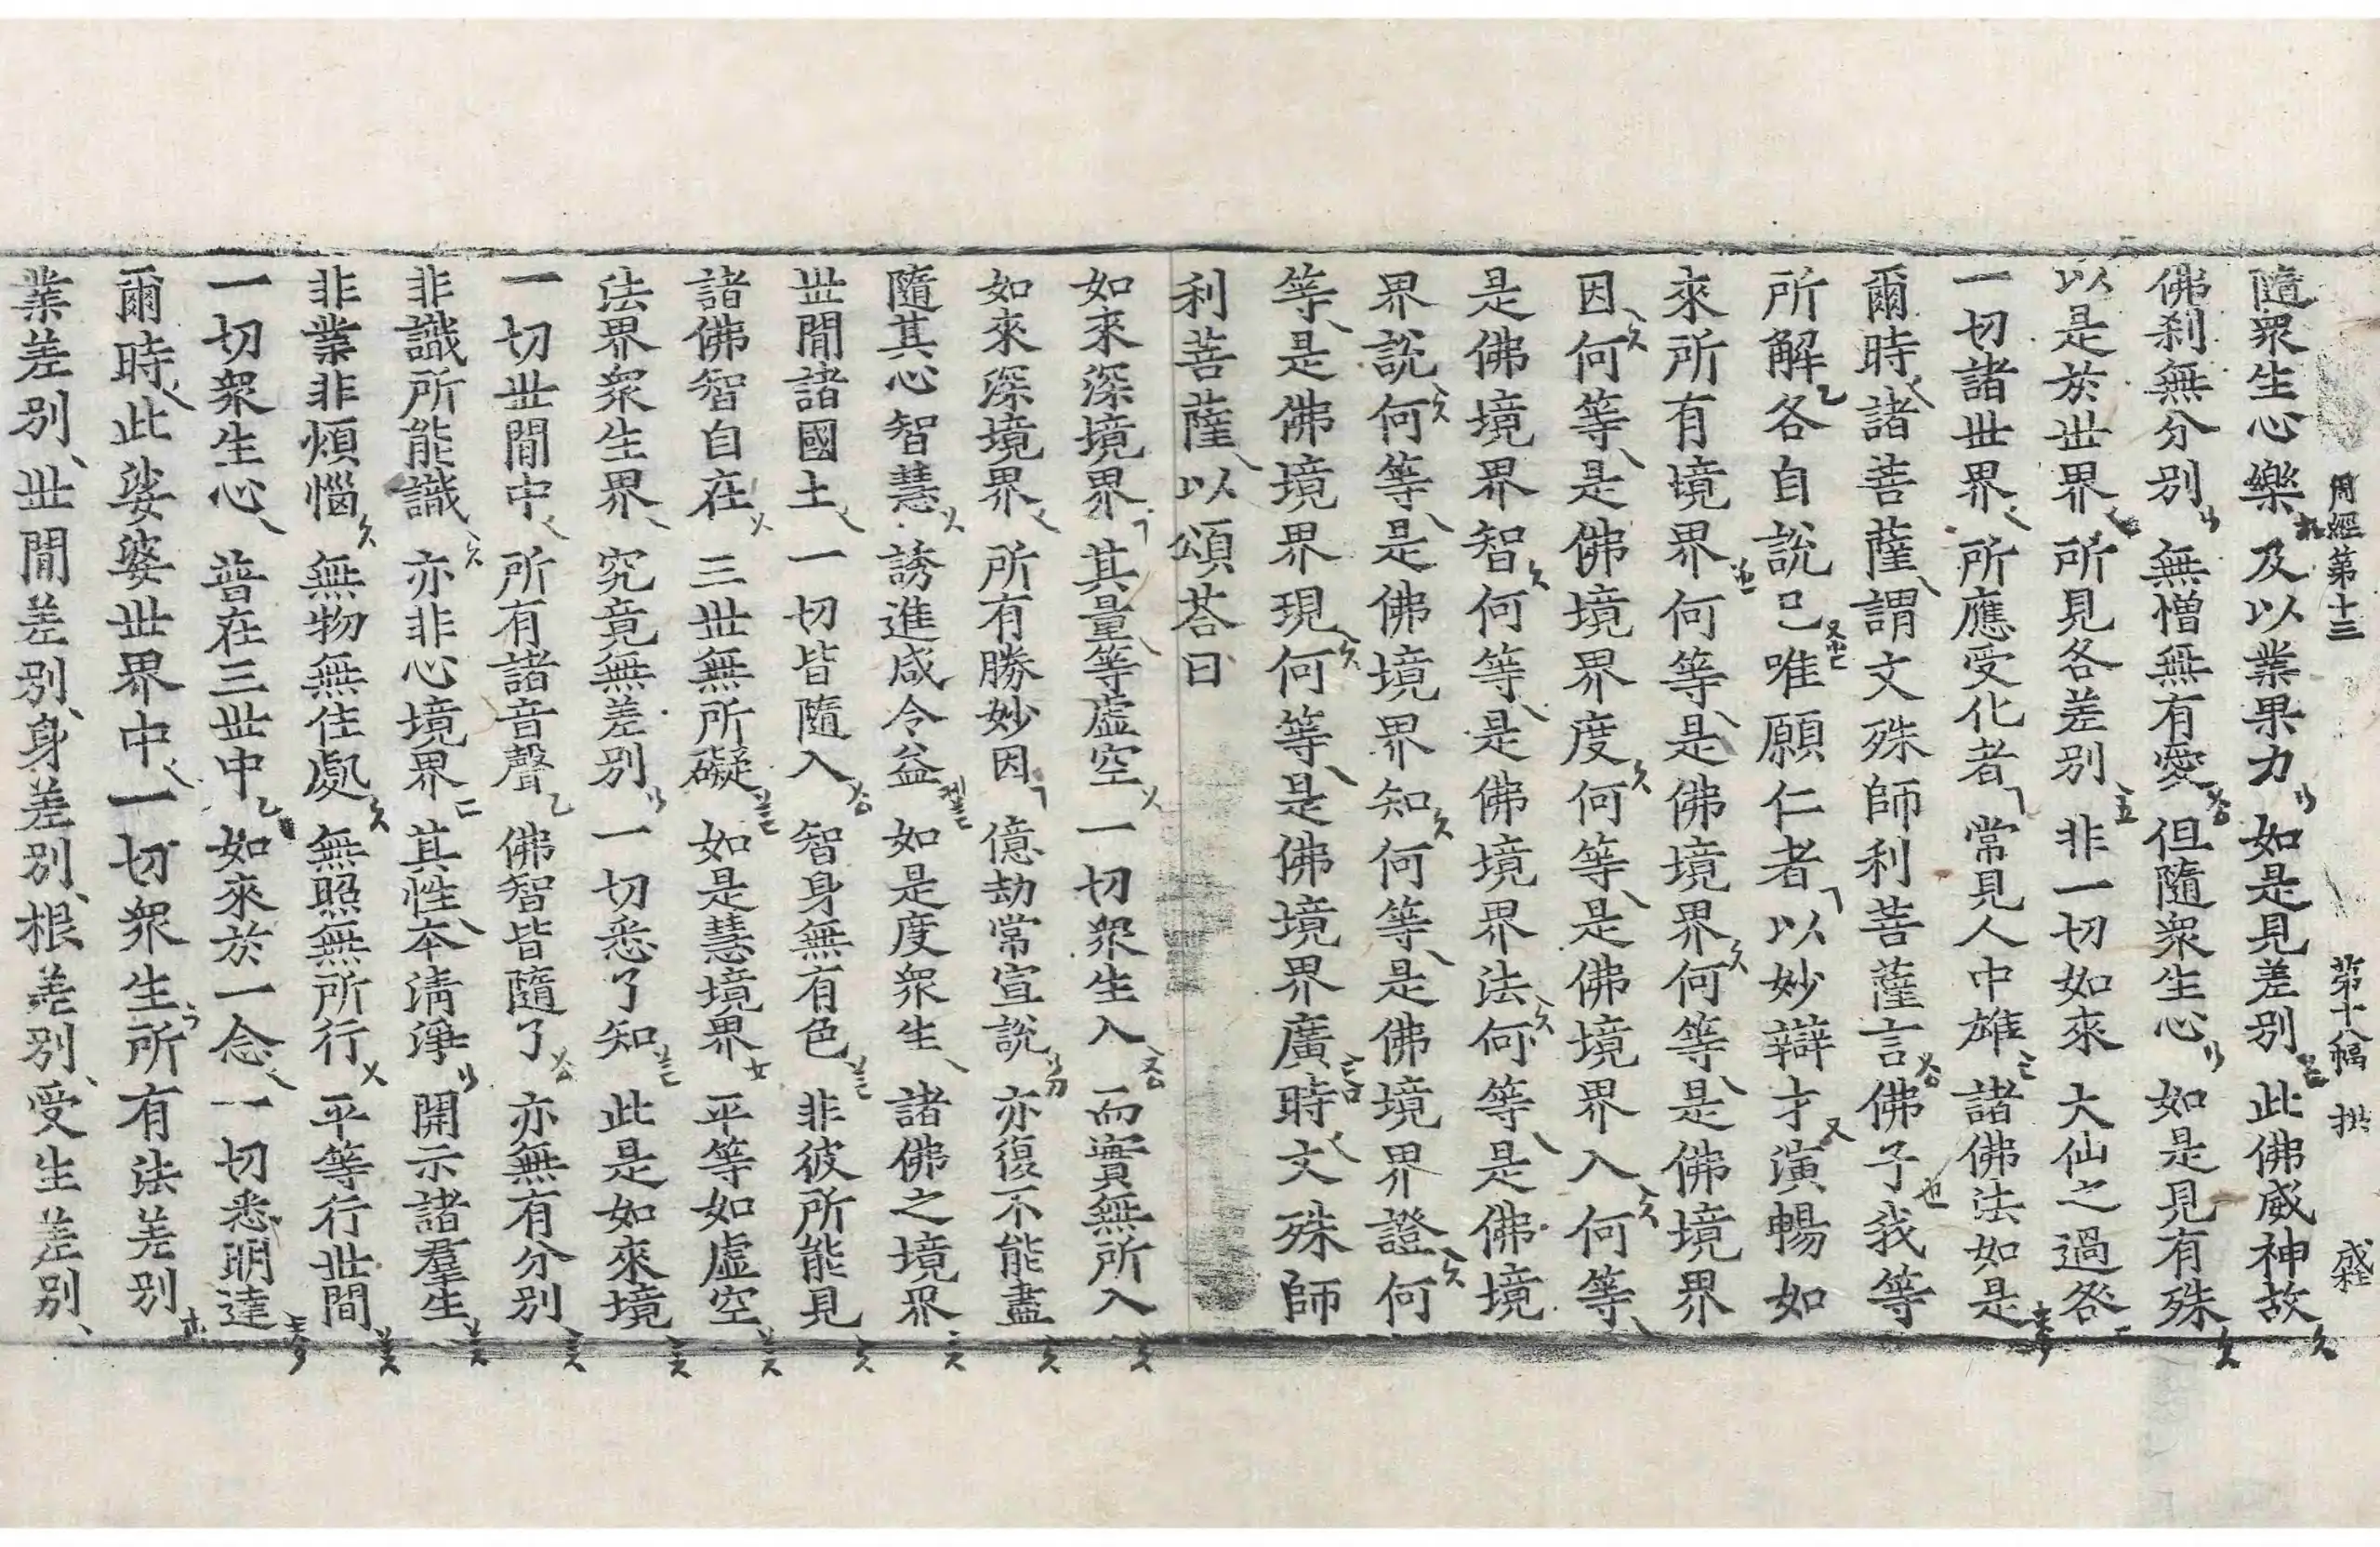 周經第十三 第十八幅
隨衆生心樂 及以業果力 如是見差別 此佛威神故
佛刹無分別 無憎無有愛 但隨衆生心 如是見有殊
以是於世界 所見各差別 非一切如來 大仙之過咎
一切諸世界 所應受化者 常見人中雄 諸佛法如是
爾時諸菩薩謂文殊師利菩薩言佛子我等
所解各自說已唯願仁者以妙辯才演暢如
來所有境界何等是佛境界何等是佛境界
因何等是佛境界度何等是佛境界入何等
是佛境界智何等是佛境界法何等是佛境
界說何等是佛境界知何等是佛境界證何
等是佛境界現何等是佛境界廣時文殊師
利菩薩以頌荅曰
如來深境界 其量等虛空 一切衆生入 而實無所入
如來深境界 所有勝妙因 億劫常宣說 亦復不能盡
隨其心智慧 誘進咸令益 如是度衆生 諸佛之境界
世間諸國土 一切皆隨入 智身無有色 非彼所能見
諸佛智自在 三世無所礙 如是慧境界 平等如虛空
法界衆生界 究竟無差別 一切悉了知 此是如來境
一切世間中 所有諸音聲 佛智皆隨了 亦無有分別
非識所能識 亦非心境界 其性本淸淨 開示諸羣生
非業非煩惱 無物無住處 無照無所行 平等行世間
一切衆生心 普在三世中 如來於一念 一切悉明達
爾時此娑婆世界中一切衆生所有法差別
業差別世間差別身差別根差別受生差別